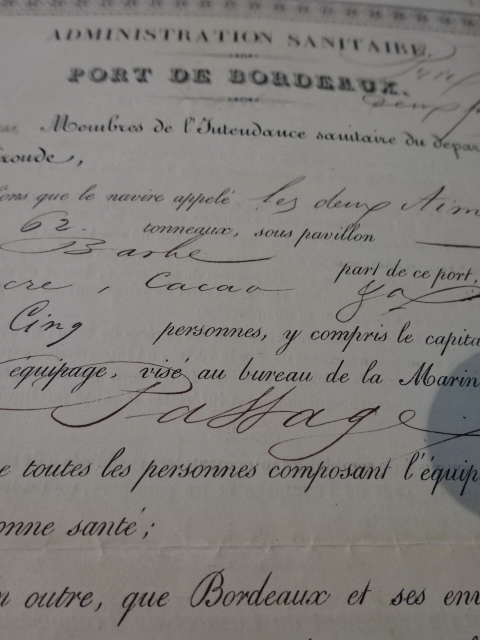 ADMINISTRATION SANITAIRE.
PORT DE BORDEAUX.
Membres de l'Intendance sanitaire du dépar
ronde,
ons que le navire appelé les deux Aim
62. tonneaux, sous pavillon
Barbe
part de ce port,
cre, Cacao
Cinq personnes, y compris le capita
équipage, visé au bureau de la Marin
Passage
e toutes les personnes composant l'équip
onne santé;
n outre, que Bordeaux et ses env